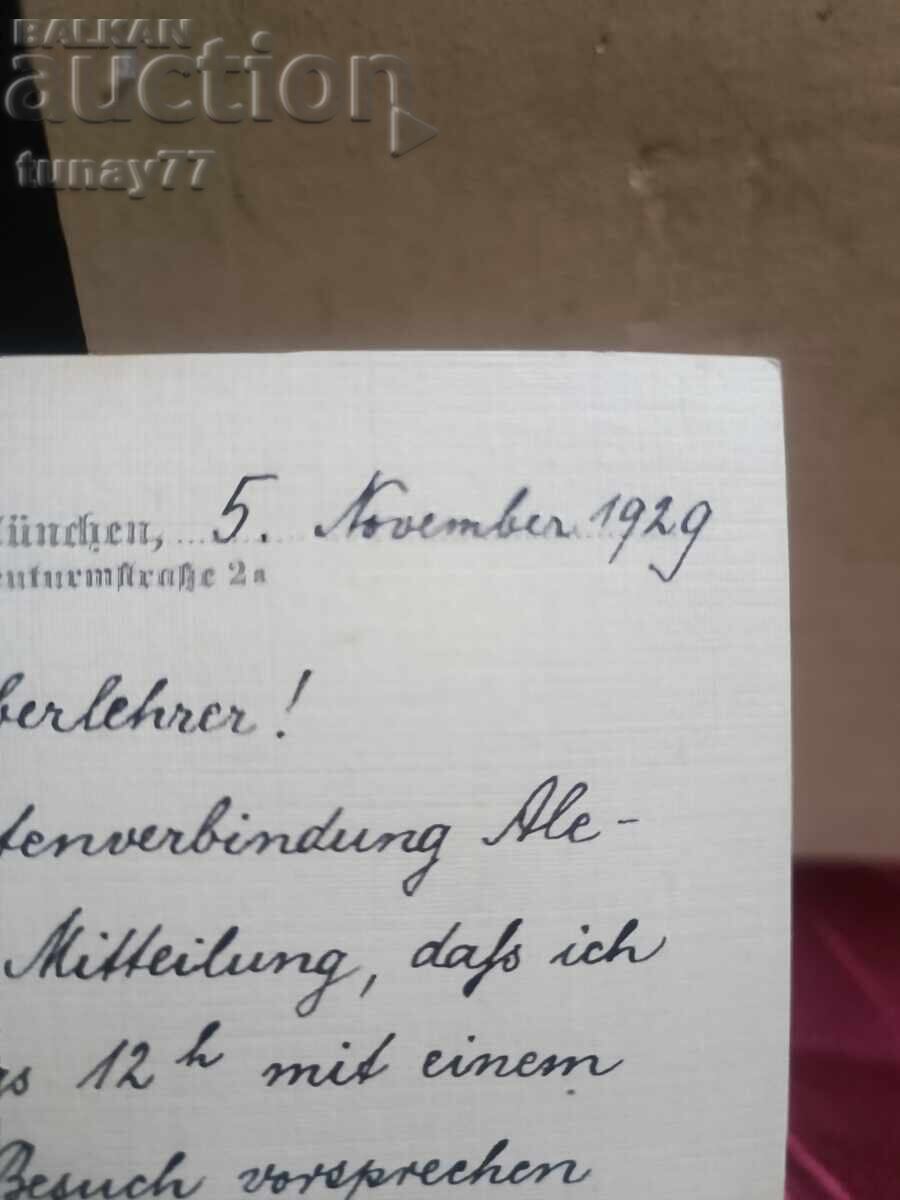 BALKAN
auction
tunay77
ünchen, 5. November 1929
enturmstraße 2a
berlehrer!
tenverbindung Ale-
Mitteilung, daß ich
gs 12 h mit einem
Besuch vorsprechen